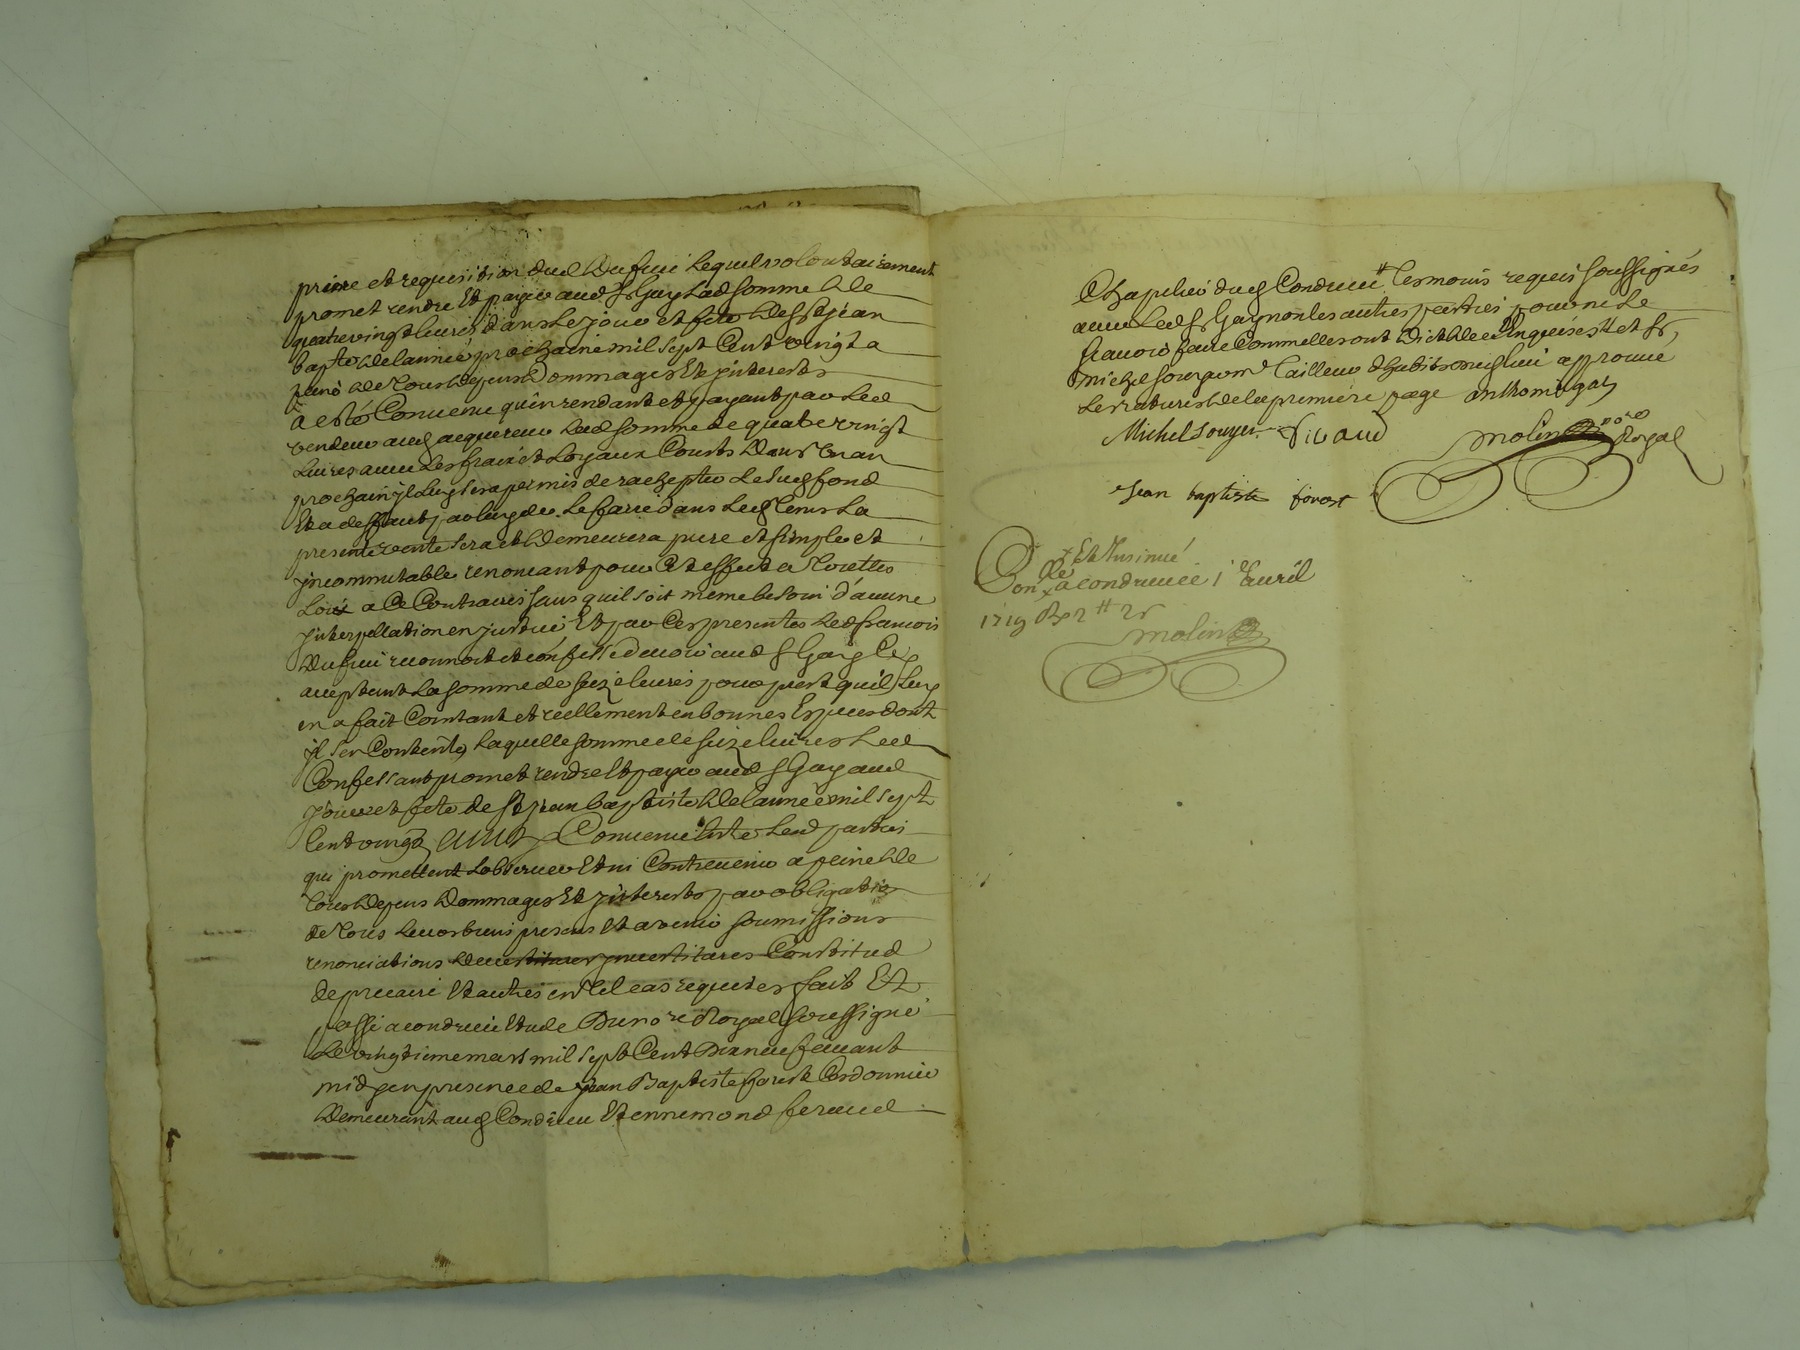 priere et requisition dud Dufui lequel volontairement
promet rendre Et payer aud Sr Gay lad somme de
quatre vingt livres dans le jour et fete de St jean
bapte de lannée prochaine mil sept Cent vingt a
peine de tous depens Dommages Et jnterests
a esté Convenu quen rendant et payant par led
vendeur aud acquereur lad somme de quatre vingt
livres avec les fraix et Loyaux Cousts dans un an
prochain jl luy sera permis de rachepter le sud fond
Et a deffaut par luy de Le faire dans led tems La
presente vente sera et Demeurera pure et simple et
jncommutable renoncant pour Cet effect a touttes
Loix a Ce Contraires sans quil soit meme besoin d'aucune
jnterpellation en justice Et par Ces presentes led francois
Dufui reconnoit et confesse devoir aud Sr Gay
acceptant La somme de seize livres pour prest quil luy
en a fait Comtant et reellement en bonnes Especes dont
jl sen Contente, laquelle somme de seize livres led
Confessant promet rendre Et payer aud Sr Gay aud
jour et fete de St jean baptiste de lannée mil sept
Cent vingt Convenu Entre lesd parties
qui promettent lobserver Et ni Contrevenir a peine de
tous depens Dommages Et jnterests par obligation
de tous leurs biens presens Et avenir soumissions
renonciations Constitud
de precaire Et autres en tel cas requises fait Et
passé a condrieu Etude Du nore Royal soussigné
Le vingtieme mars mil sept Cent Dix neuf avant
midy en presence de jean Baptiste forest Cordonnier
Demeurant aud Condrieu Et ennemond feraud
Chapelier dud Condrieu temoins requis soussignés
avec led Sr Gay non les autres parties pour ne le
scavoir faire Comme elles ont dict de ce Enquises Et Sr
michel souyer Tailleur d'habits aussy approuvé
Les ratures de la premiere page Anthoine gay
Michel souyer feraud molin nore Royal
Jean baptiste forest
Con&lé Et Insinué
a condrieu 1er avril
1719 R 2tt
molin